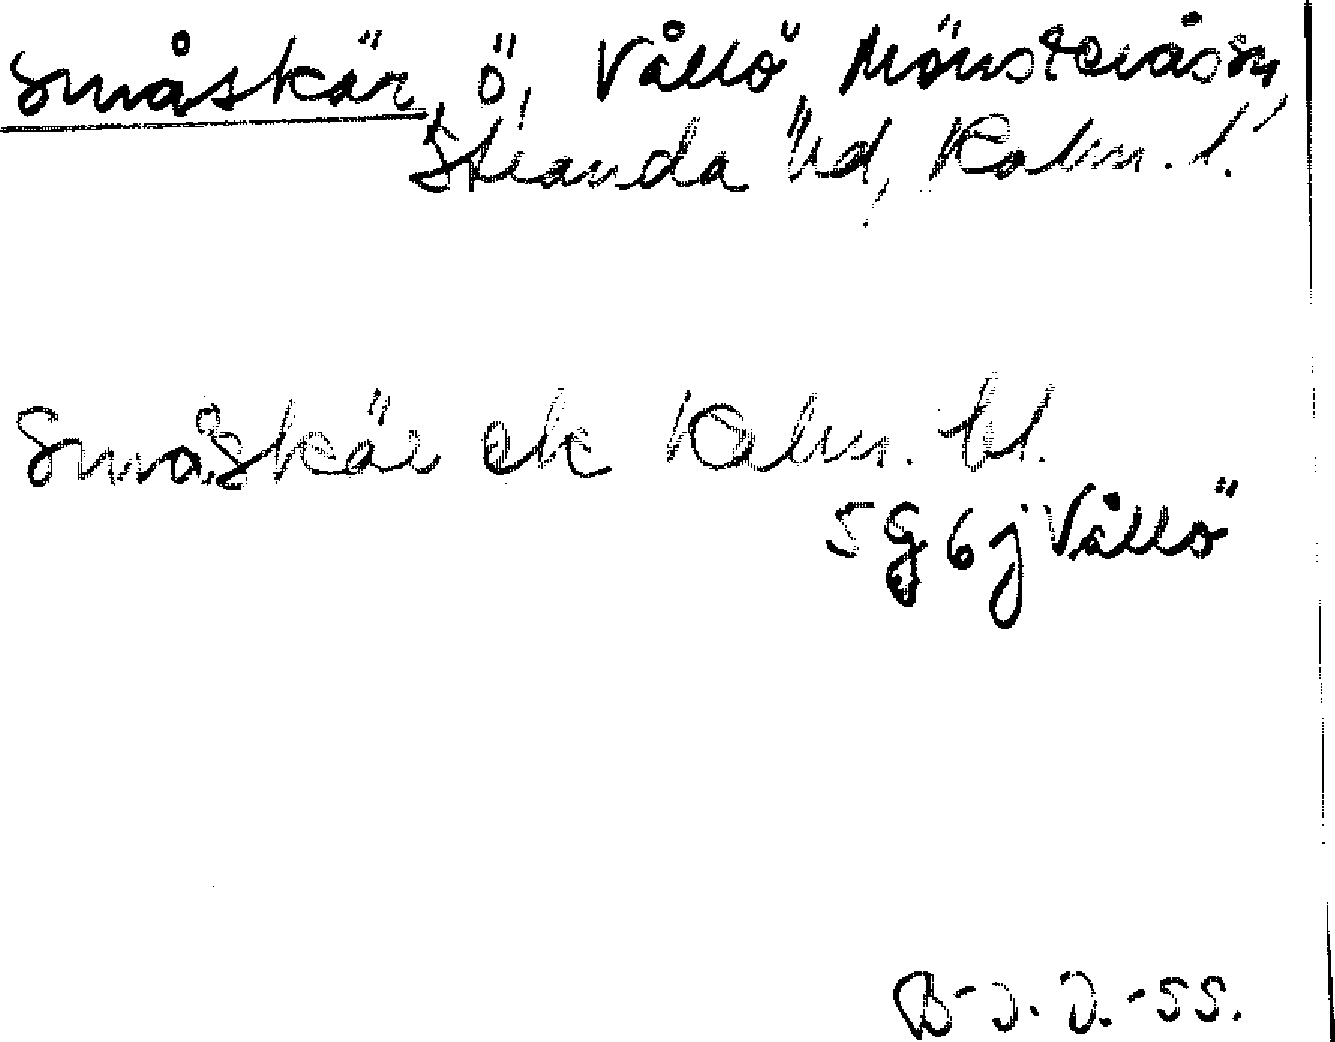 Småskär, ö, Vållö, Mönsterås sn,
Stranda hd, Kalm. l.
Småskär ek Kalm. bl.
5 G 6 j Vållö
B-J. J. -55.